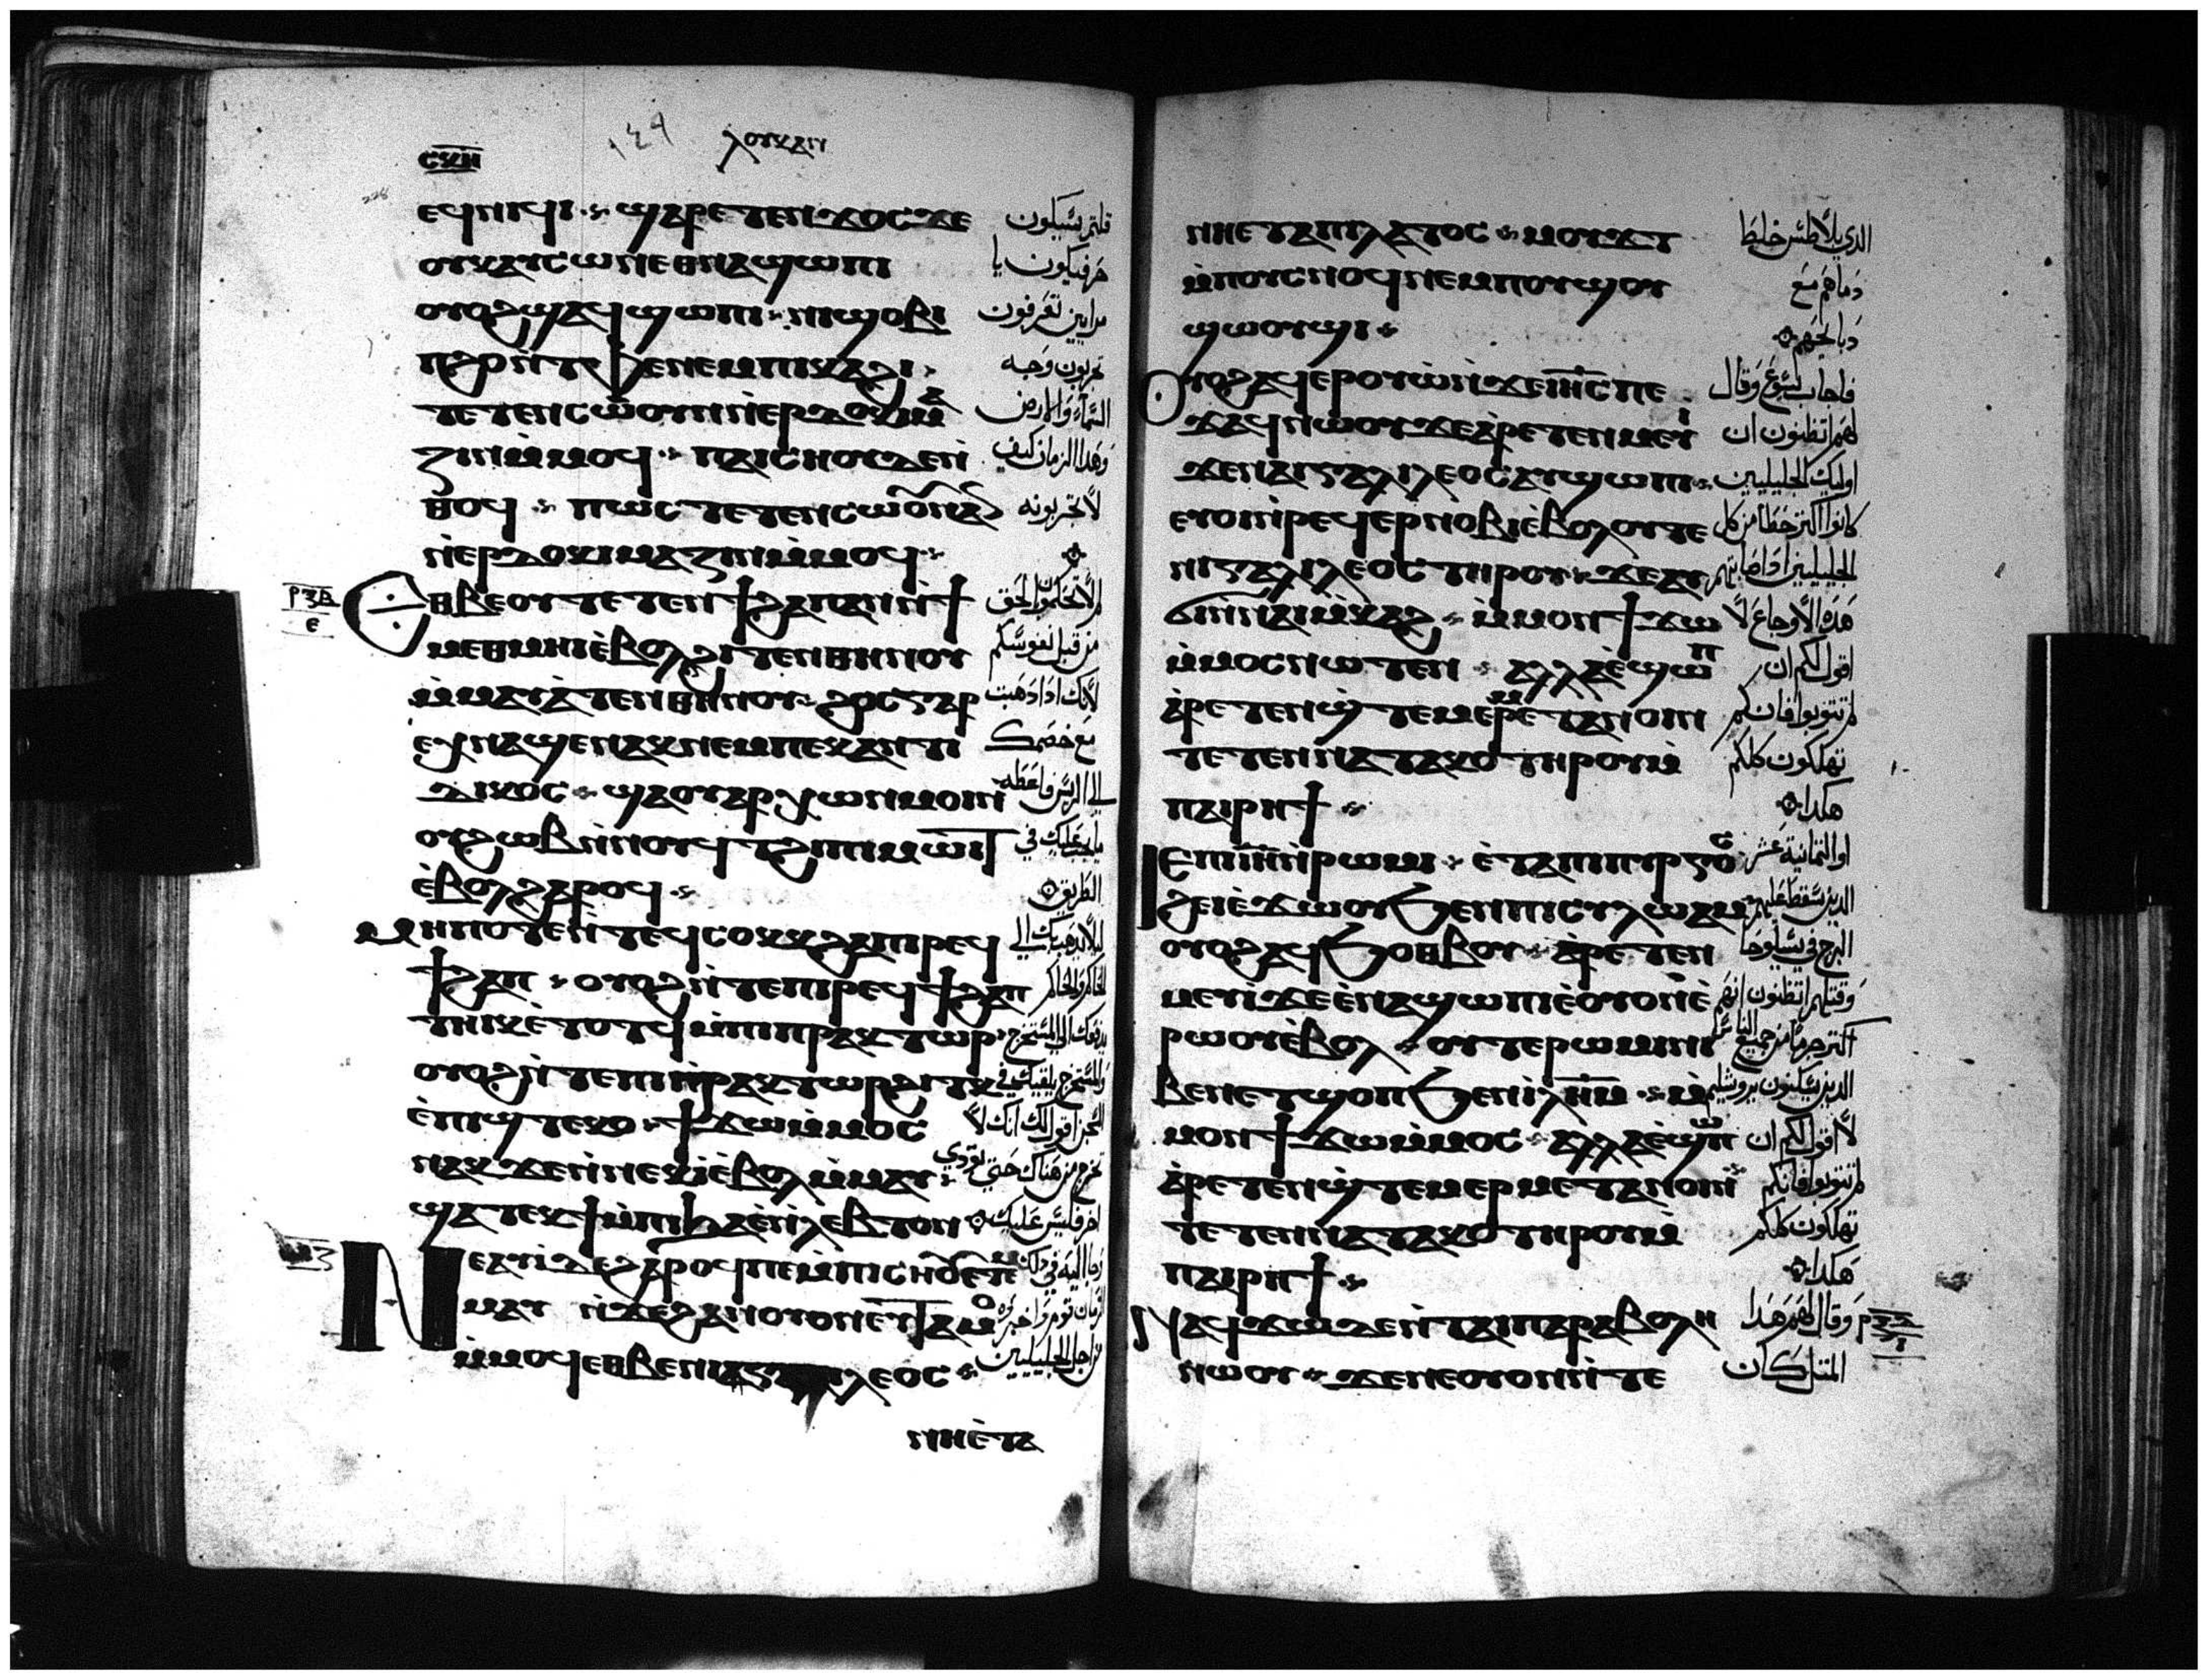 ⲥⲕⲏ
١٤٩
ⲗⲟⲩⲕⲁⲛ
228
ⲉϥⲛⲓϥⲓ ϣⲁⲣⲉⲧⲉⲛϫⲟⲥϫⲉ
ⲟⲩⲕⲁⲩⲥⲱⲛⲉⲑⲛⲁϣⲱⲡⲓ
ⲟⲩⲟϩϣⲁϥϣⲱⲡⲓ ⲛⲓϣⲟⲃⲓ
ⲡϩⲟ ⲛⲧⲫⲉⲛⲉⲙⲡⲓⲕⲁϩⲓ
ⲧⲉⲧⲉⲛⲥⲱⲟⲩⲛⲛⲉⲣⲇⲟⲕⲓⲙⲁ
ⲍⲓⲛⲙⲙⲟϥ ⲡⲁⲓⲥⲛⲟⲩⲇⲉⲛ
ⲑⲟϥ ⲡⲱⲥ ⲧⲉⲧⲉⲛⲥⲱⲟⲩⲛⲁⲛ
ⲛⲉⲣⲇⲟⲕⲓⲙⲁⲍⲓⲛⲙⲙⲟϥ
ⲉⲑⲃⲉⲟⲩ ⲧⲉⲧⲉⲛϯϩⲁⲡⲁⲛⲛϯ
ⲙⲉⲑⲙⲏⲓⲉⲃⲟⲗϩⲓⲧⲉⲛⲑⲏⲛⲟⲩ
ⲙⲙⲁⲩⲁⲧⲉⲛⲑⲏⲛⲟⲩ ϩⲟⲥⲅⲁⲣ
ⲉⲕⲛⲁϣⲉⲛⲁⲕⲛⲉⲙⲡⲉⲕⲁⲛⲧⲓ
ⲇⲓⲕⲟⲥ ϣⲁⲟⲩⲁⲣⲭⲱⲛⲙⲟⲓⲛ
ⲟⲩϩⲱⲃⲛⲛⲟⲩϥⲧϩⲓⲡⲓⲙⲱⲓⲧ
ⲉⲃⲟⲗϩⲁⲣⲟϥ
ⲙⲏⲡⲟⲧⲉⲛⲧⲉϥⲥⲟⲕⲕϩⲁⲡⲓⲣⲉϥ
ϯϩⲁⲡ ⲟⲩⲟϩⲛⲧⲉⲡⲓⲣⲉϥϯϩⲁⲡ
ⲧⲏⲓⲕⲉⲧⲟⲧϥⲙⲡⲓⲡⲣⲁⲕⲧⲱⲣ
ⲟⲩⲟϩⲛⲧⲉⲡⲓⲡⲣⲁⲕⲧⲱⲣϩⲓⲧⲕ
ⲉⲡⲓϣⲧⲉⲕⲟ ϯϫⲱⲙⲙⲟⲥ
ⲛⲁⲕϫⲉⲛⲛⲉⲕⲓⲉⲃⲟⲗⲙⲙⲁⲩ
ϣⲁⲧⲉⲕϯⲙⲡⲓϧⲁⲉⲛⲗⲉⲃⲧⲟⲛ
ⲛⲉⲁⲩⲓⲇⲉϩⲁⲣⲟϥⲡⲉⲙⲡⲓⲥⲛⲟⲩⲉⲧⲉⲙ
ⲙⲁⲩ ⲛϫⲉϩⲁⲛⲟⲩⲟⲛⲉⲩⲧⲁⲙⲟ
ⲙⲙⲟϥⲉⲑⲃⲉⲛⲓⲅⲁⲗⲓⲗⲉⲟⲥ
ⲛⲏⲉⲧⲁ
قلتم يسيكون
حر فيكون يا
مرايين تعرفون
تجربون وجه
السماء والارض
وهدا الزمان كيف
لا تجربونه
لم لا تحكمون الحق
من قبل نفوسكم
لانك ادا دهبت
مع خصمك
الى الريس فاعطه
ما يجب عليك في
الطريق
ليلا يدهب بك الى
الحاكم والحاكم
يدفعك الى المستخرج
والمستخرج يلقيك في
السجن اقول لك انك لا
تخرج من هناك حتى تودي
اخر فلس عليك
وجا اليه في دلك
الزمان قوم واخبروه
من اجل الجليليين
ⲛⲏⲉⲧⲁⲡⲓⲗⲁⲧⲟⲥ ⲙⲟⲩϫⲧ
ⲙⲡⲟⲩⲥⲛⲟϥⲛⲉⲙⲡⲟⲩϣⲟⲩ
ϣⲱⲟⲩϣⲓ
ⲟⲩⲟϩⲁϥⲉⲣⲟⲩⲱⲛϫⲉⲓⲏⲥⲡⲉ
ϫⲁϥⲛⲱⲟⲩϫⲉⲁⲣⲉⲧⲉⲛⲙⲉⲩⲓ
ϫⲉⲛⲁⲓⲅⲁⲗⲓⲗⲉⲟⲥⲁⲩϣⲱⲡⲓ
ⲉⲩⲟⲓⲛⲣⲉϥⲉⲣⲛⲟⲃⲓⲉⲃⲟⲗⲟⲩⲧⲉ
ⲛⲓⲅⲁⲗⲓⲗⲉⲟⲥⲧⲏⲣⲟⲩ ϫⲉⲁⲩ
ϭⲓⲛⲛⲁⲓⲙⲕⲁⲩϩ ⲙⲙⲟⲛϯϫⲱ
ⲙⲙⲟⲥⲛⲱⲧⲉⲛ ⲁⲗⲗⲁⲉϣⲱⲡ
ⲁⲣⲉⲧⲉⲛϣⲧⲉⲙⲉⲣⲙⲉⲧⲁⲛⲟⲓⲛ
ⲧⲉⲧⲉⲛⲛⲁⲧⲁⲕⲟⲧⲏⲣⲟⲩⲙ
ⲡⲁⲓⲣⲏϯ
ⲓⲉⲡⲓⲓⲏⲛⲣⲱⲙⲓ ⲉⲧⲁⲡⲓⲡⲩⲣⲅⲟⲥ
ϩⲉⲓⲉϫⲱⲟⲩϧⲉⲛⲡⲓⲥⲩⲗⲱⲁⲙ
ⲟⲩⲟϩⲁϥϧⲟⲑⲃⲟⲩ ⲁⲣⲉⲧⲉⲛ
ⲙⲉⲩⲓϫⲉⲉⲛⲁϣⲱⲡⲓⲉⲟⲩⲟⲛⲉ
ⲣⲱⲟⲩⲉⲃⲟⲗ ⲟⲩⲧⲉⲣⲱⲙⲓⲛⲓ
ⲃⲉⲛⲉⲧϣⲟⲡϧⲉⲛⲓⲗⲏⲙ ⲙ
ⲙⲟⲛϯϫⲱⲙⲙⲟⲥ ⲁⲗⲗⲁⲉϣⲱⲡ
ⲁⲣⲉⲧⲉⲛϣⲧⲉⲙⲉⲣⲙⲉⲧⲁⲛⲟⲓⲛ
ⲧⲉⲧⲉⲛⲛⲁⲧⲁⲕⲟⲧⲏⲣⲟⲩⲙ
ⲡⲁⲓⲣⲏϯ
ⲛⲁϥϫⲱϫⲉⲛⲧⲁⲓⲡⲁⲣⲁⲃⲟⲗⲏ
ⲛⲱⲟⲩ ϫⲉⲛⲉⲟⲩⲟⲛⲛⲧⲉ
الدي بيلاطس خلط
دماهم مع
دبايحهم
فاجاب يسوع وقال
لهم اتظنون ان
اوليك الجليليين
كانوا اكتر خطا من كل
الجليليين اد اصابتهم
هده الاوجاع لا
اقول لكم ان
لم تتوبوا فانكم
تهلكون كلكم
هكدا
او التمانية عشر
الدين سقط عليهم
البرج في سيلوحا
وقتلهم اتظنون انهم
اكتر جرما من جميع الناس
الدين يسكنون يروشليم
لا اقول لكم ان
لم تتوبوا فانكم
تهلكون كلكم
هكدا
وقال لهم هدا
المتل كان